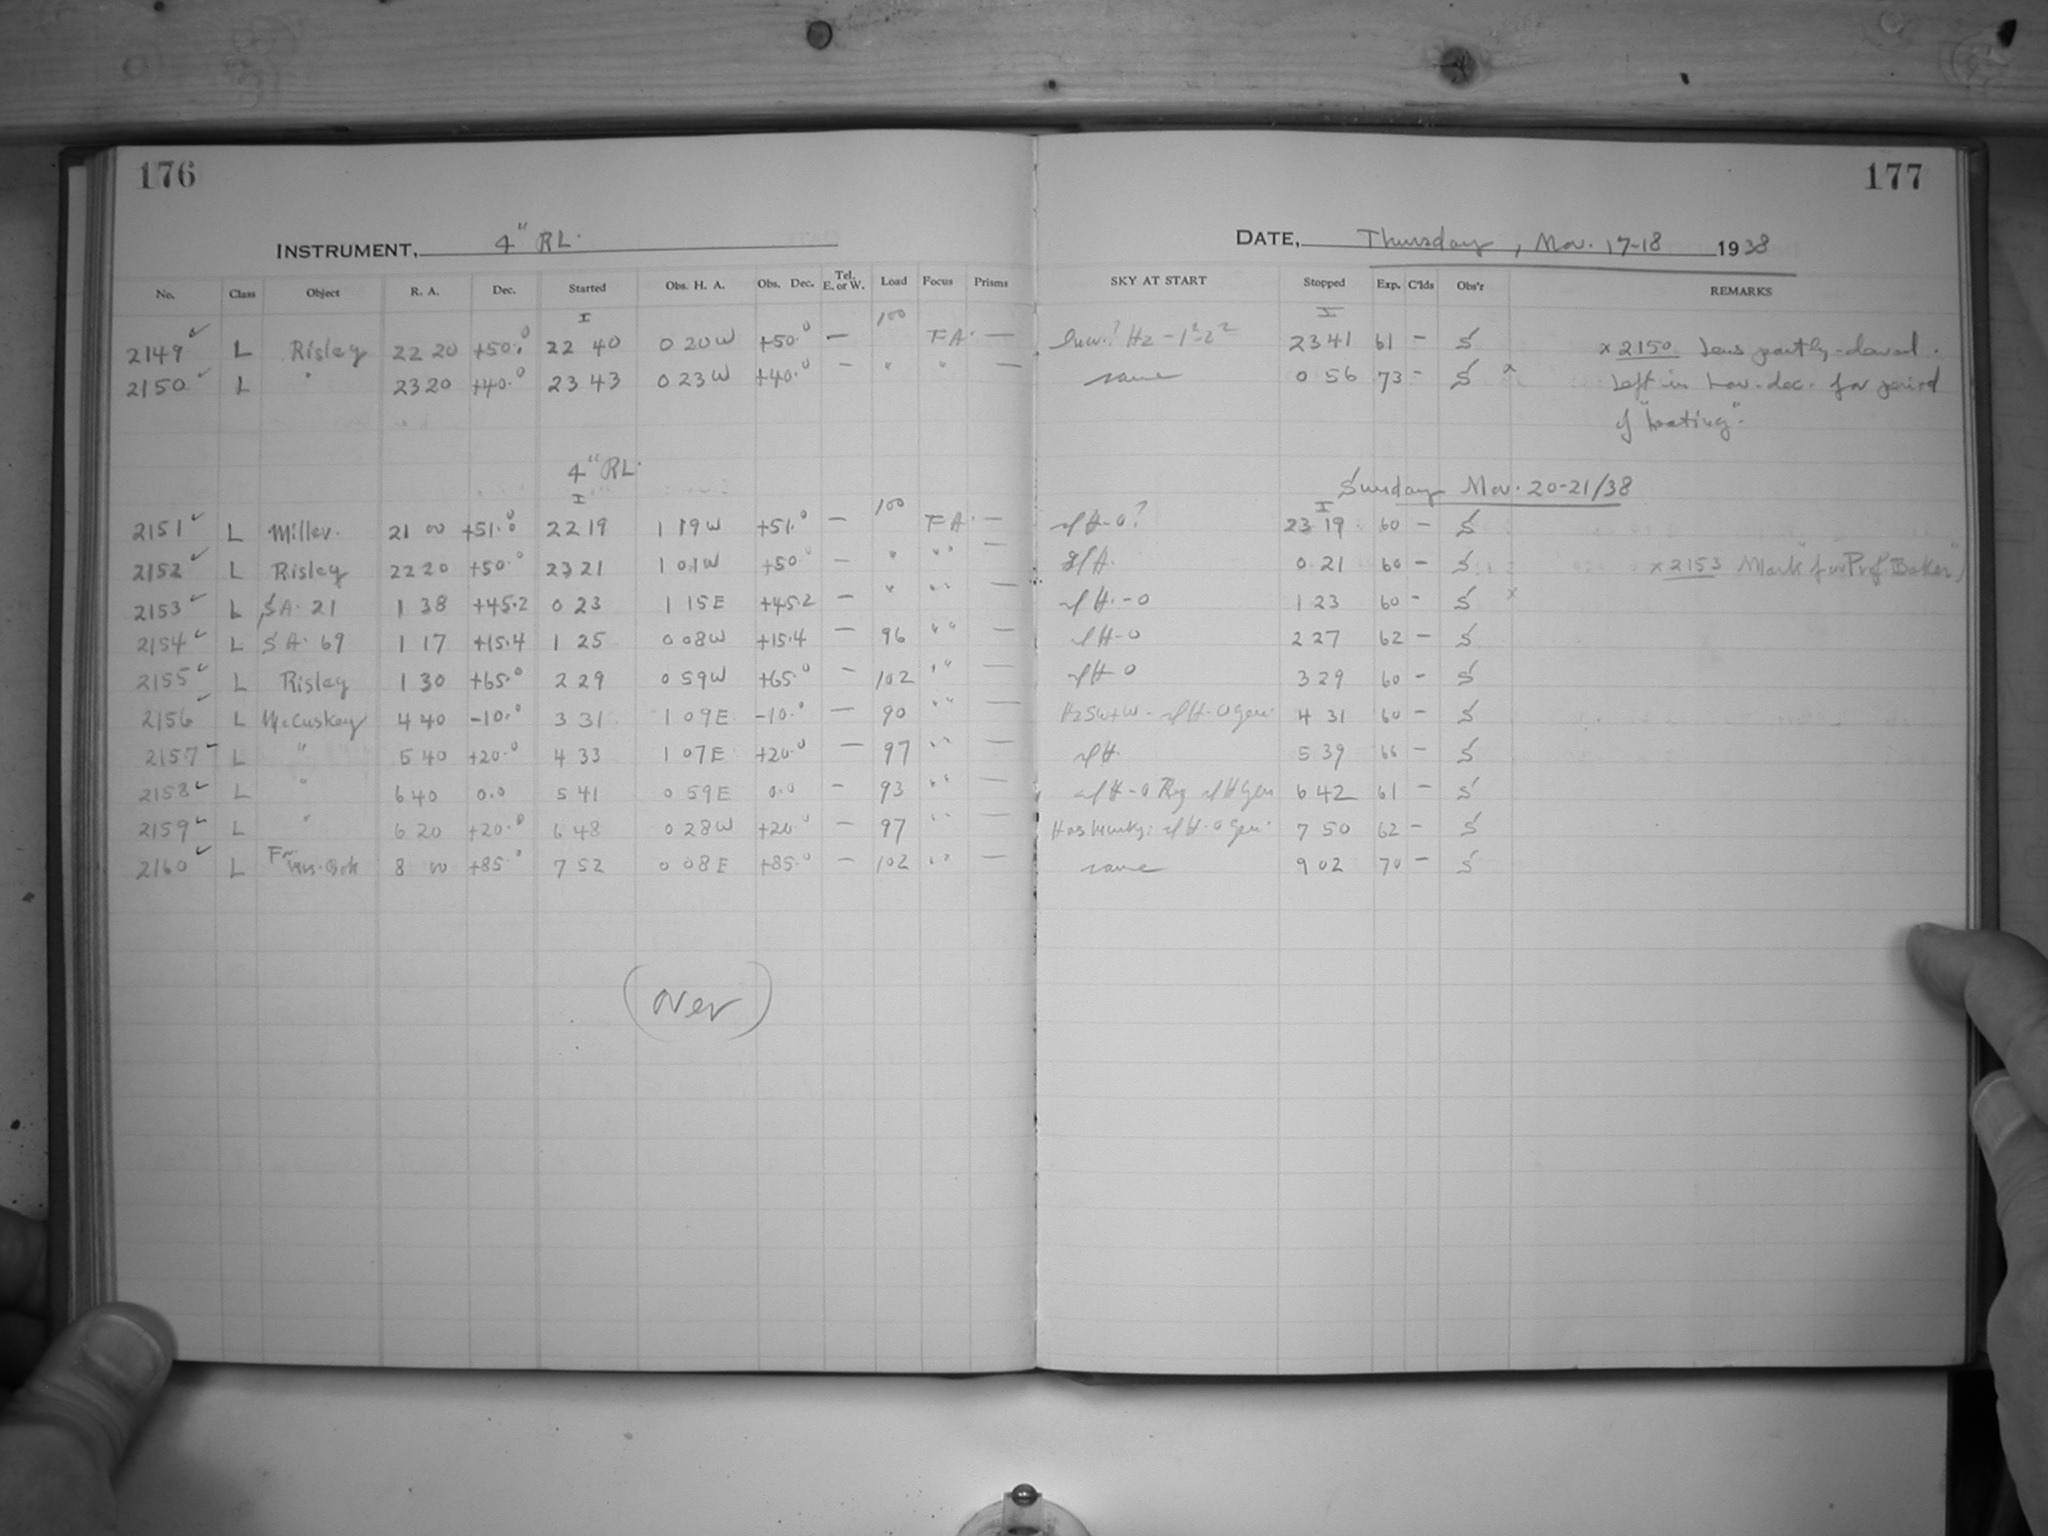 176
177
INSTRUMENT, 4" RL.
DATE, Thursday, Nov. 17-18 1938
No. Class Object R. A. Dec. Started Obs. H. A. Obs. Dec. Tel. E. or W. Load Focus Prisms SKY AT START Stopped Exp. C'lds Obs'r REMARKS
I 100 I
2149 ✓ L Risley 22 20 +50.0 22 40 0 20W +50.0 — FA. — Hz -1²-2² 23 41 61 - S x 2150 Lens partly-dewed.
2150 ✓ L " 23 20 +40.0 23 43 0 23W +40.0 — " " — same 0 56 73 - S x Left in hov. dec. for period
of "heating".
4" RL.
Sunday Nov. 20-21/38
I 100 I
2151 ✓ L Miller. 21 00 +51.0 22 19 1 19W +51.0 — FA. — H-0? 23 19 60 - S
2152 ✓ L Risley 22 20 +50.0 23 21 1 01W +50.0 — " " " — 0 21 60 - S x 2153 Mark "for Prof Baker"
2153 ✓ L SA. 21 1 38 +45.2 0 23 1 15E +45.2 — " " " — H.-0 1 23 60 - S x
2154 ✓ L SA. 69 1 17 +15.4 1 25 0 08W +15.4 — 96 " " — H-0 2 27 62 - S
2155 ✓ L Risley 1 30 +65.0 2 29 0 59W +65.0 — 102 " " — H-0 3 29 60 - S
2156 ✓ L McCuskey 4 40 -10.0 3 31 1 09E -10.0 — 90 " " — Hz SW+W - H-0 gen. 4 31 60 - S
2157 ✓ L " 5 40 +20.0 4 33 1 07E +20.0 — 97 " " — H. 5 39 66 - S
2158 ✓ L " 6 40 0.0 5 41 0 59E 0.0 - 93 " " — H-0 H gen 6 42 61 - S
2159 ✓ L " 6 20 +20.0 6 48 0 28W +20.0 — 97 " " — H-0 gen. 7 50 62 - S
2160 ✓ L Fr. Vars.-Bok 8 00 +85.0 7 52 0 08E +85.0 — 102 " " — same 9 02 70 - S
(over)